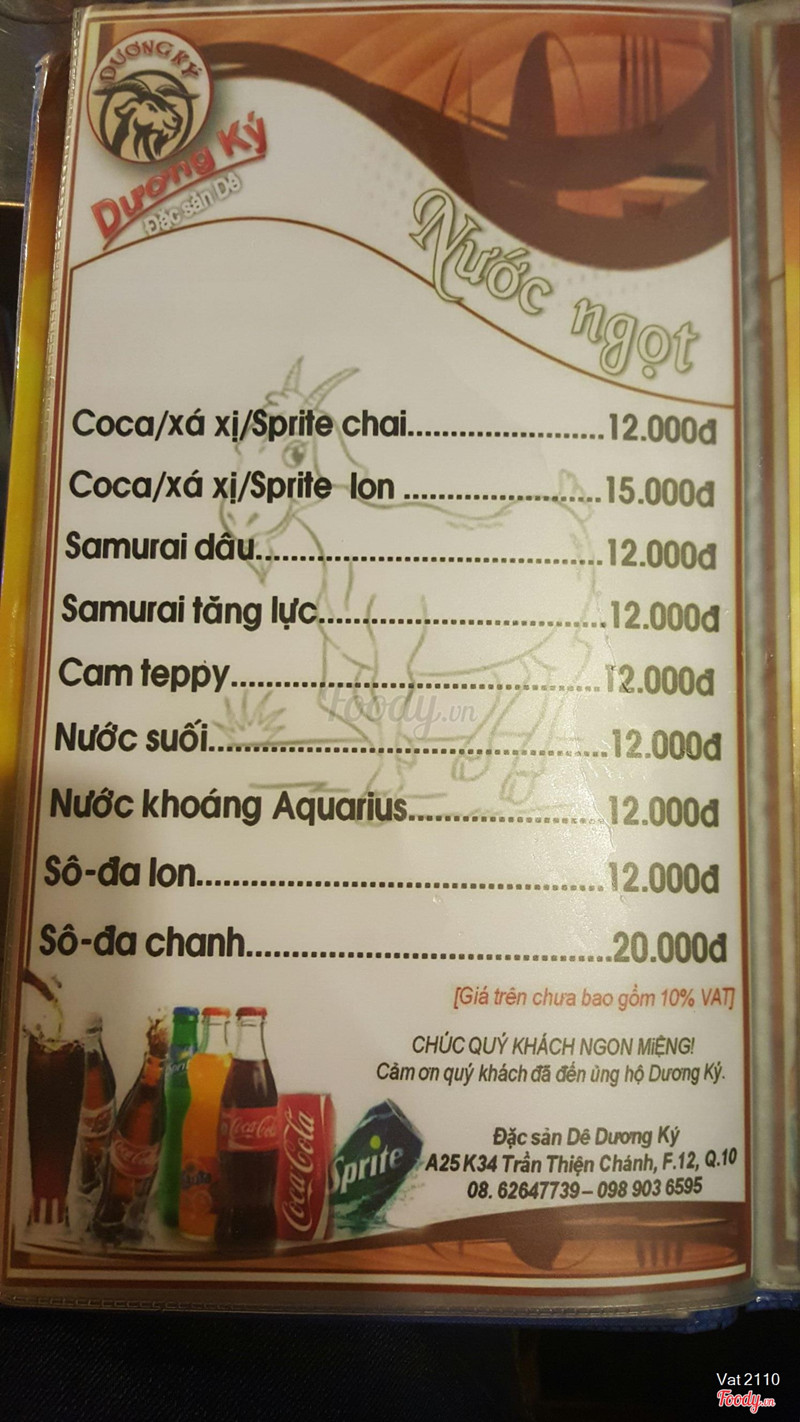 DƯƠNG KÝ
Dương Ký
Đặc sản Dê
Nước ngọt
Coca/xá xị/Sprite chai......................12.000đ
Coca/xá xị/Sprite lon ......................15.000đ
Samurai dâu......................................12.000đ
Samurai tăng lực................................12.000đ
Cam teppy.........................................12.000đ
Nước suối............................................12.000đ
Nước khoáng Aquarius......................12.000đ
Sô-đa lon.............................................12.000đ
Sô-đa chanh........................................20.000đ
[Giá trên chưa bao gồm 10% VAT]
CHÚC QUÝ KHÁCH NGON MiỆNG!
Cảm ơn quý khách đã đến ủng hộ Dương Ký.
Đặc sản Dê Dương Ký
A25 K34 Trần Thiện Chánh, F.12, Q.10
08. 62647739 – 098 903 6595
Foody.vn
Sprite
Coca-Cola
Coca-Cola
Coca-Cola
Sprite
Vat2110
Foody.vn